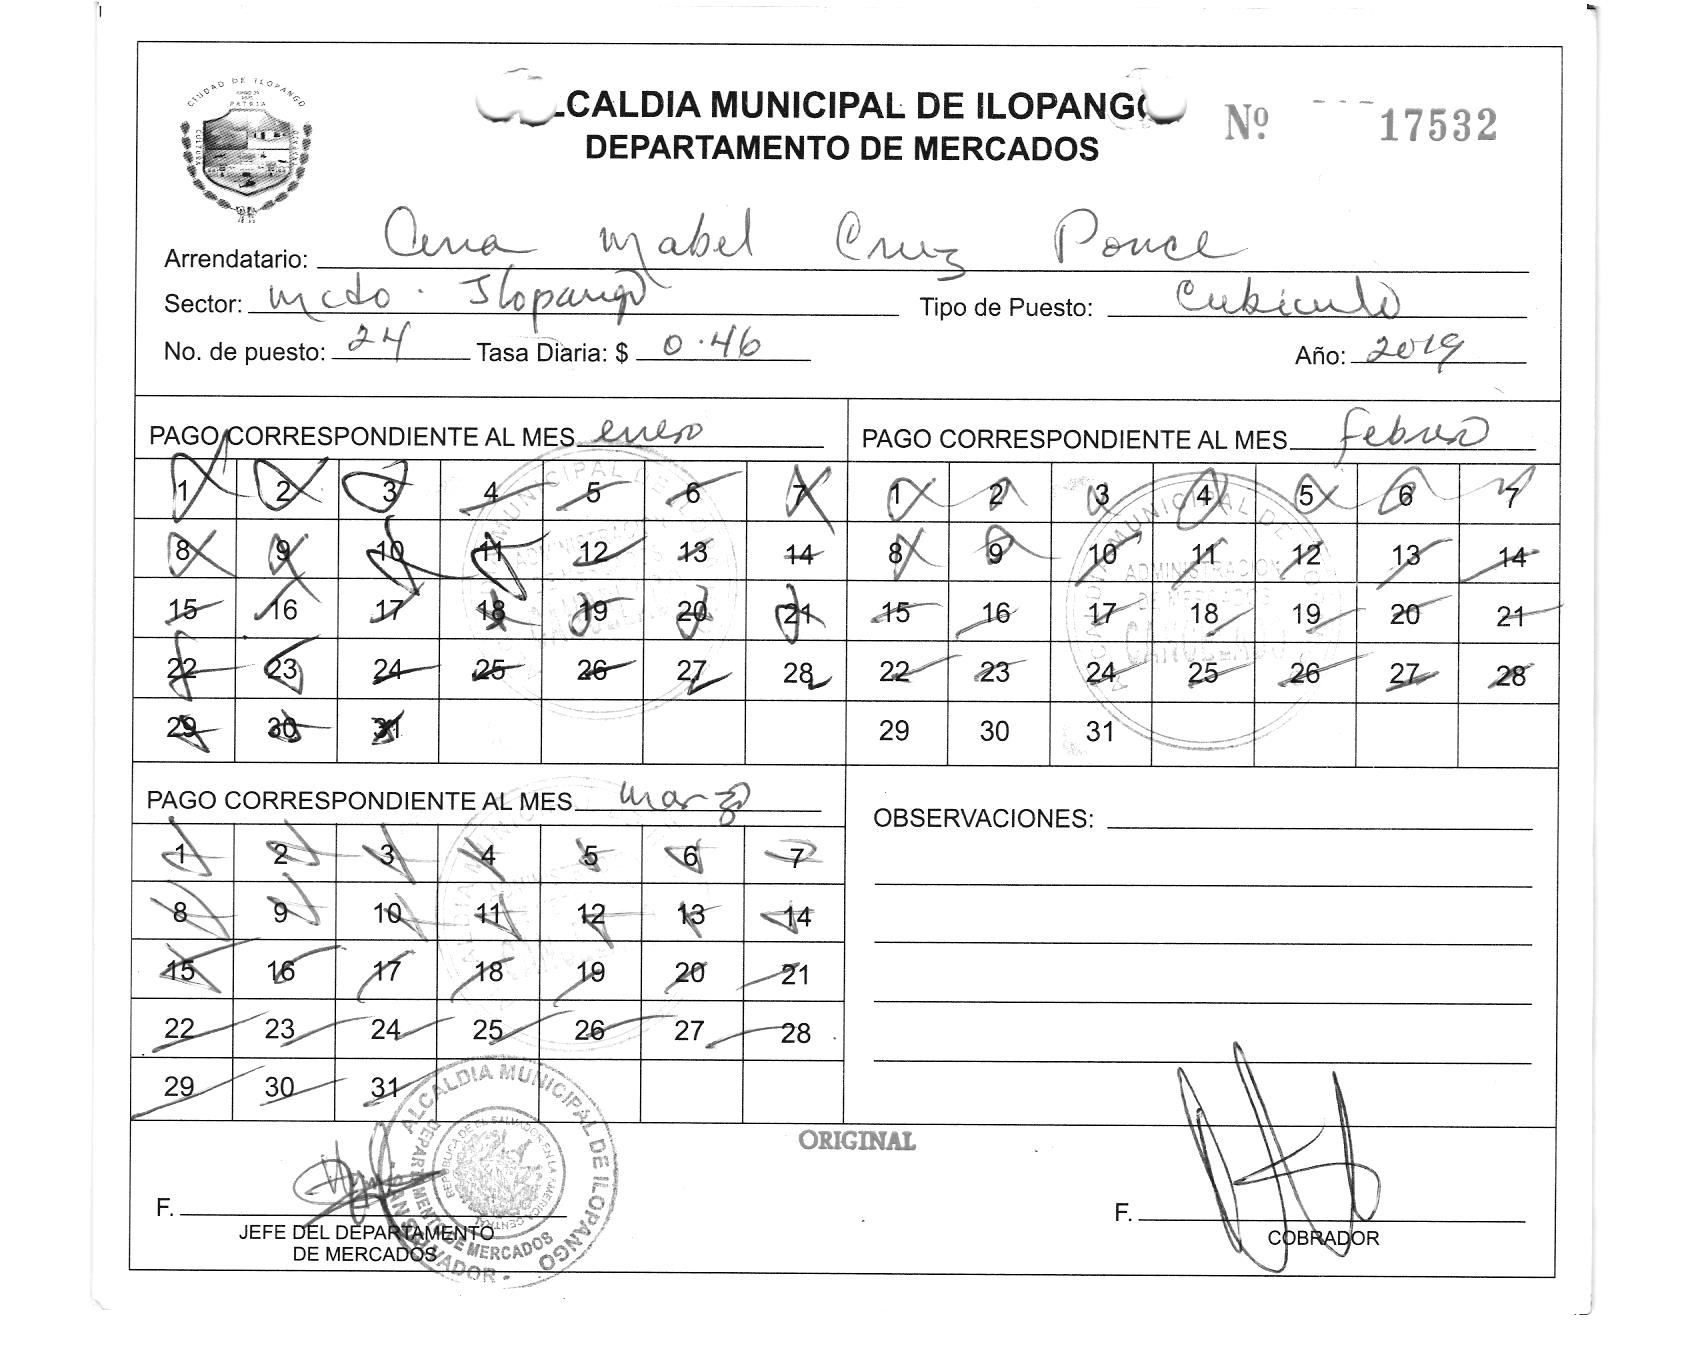 CIUDAD DE ILOPANGO
PATRIA
CULTURA
LCALDIA MUNICIPAL DE ILOPANGO
DEPARTAMENTO DE MERCADOS
Nº 17532
Arrendatario: Ana Mabel Cruz Ponce
Sector: Mcdo. Ilopango Tipo de Puesto: Cubiculo
No. de puesto: 24 Tasa Diaria: $ 0.46 Año: 2019
PAGO CORRESPONDIENTE AL MES enero
1 2 3 4 5 6 7
8 9 10 11 12 13 14
15 16 17 18 19 20 21
22 23 24 25 26 27 28
29 30 31
PAGO CORRESPONDIENTE AL MES febrero
1 2 3 4 5 6 7
8 9 10 11 12 13 14
15 16 17 18 19 20 21
22 23 24 25 26 27 28
29 30 31
MUNICIPAL DE
ADMINISTRACION
DE MERCADOS
CANCELADO
PAGO CORRESPONDIENTE AL MES marzo
1 2 3 4 5 6 7
8 9 10 11 12 13 14
15 16 17 18 19 20 21
22 23 24 25 26 27 28
29 30 31
OBSERVACIONES:
ORIGINAL
F.
JEFE DEL DEPARTAMENTO
DE MERCADOS
ALCALDIA MUNICIPAL DE ILOPANGO
DEPARTAMENTO DE MERCADOS
REPUBLICA DE EL SALVADOR EN LA AMERICA CENTRAL
SAN SALVADOR
F.
COBRADOR